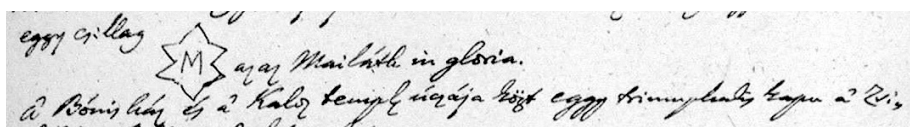 eggy csillag
M
azaz Mailáth in gloria.
à Bónis ház és à Kalo templ úczája közt eggy triumphalis kapu à